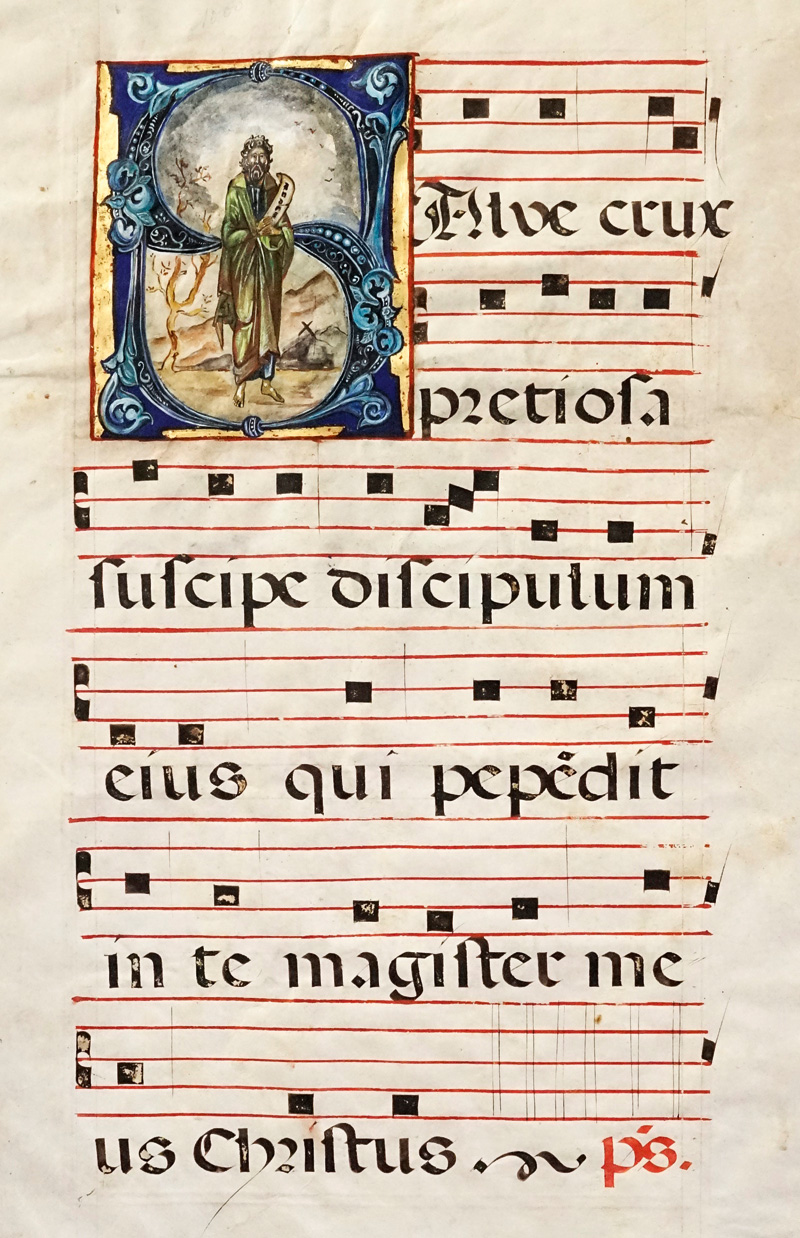 SAlve crux
pretiosa
suscipe discipulum
eius qui pepédit
in te magister me
us Christus
ps.